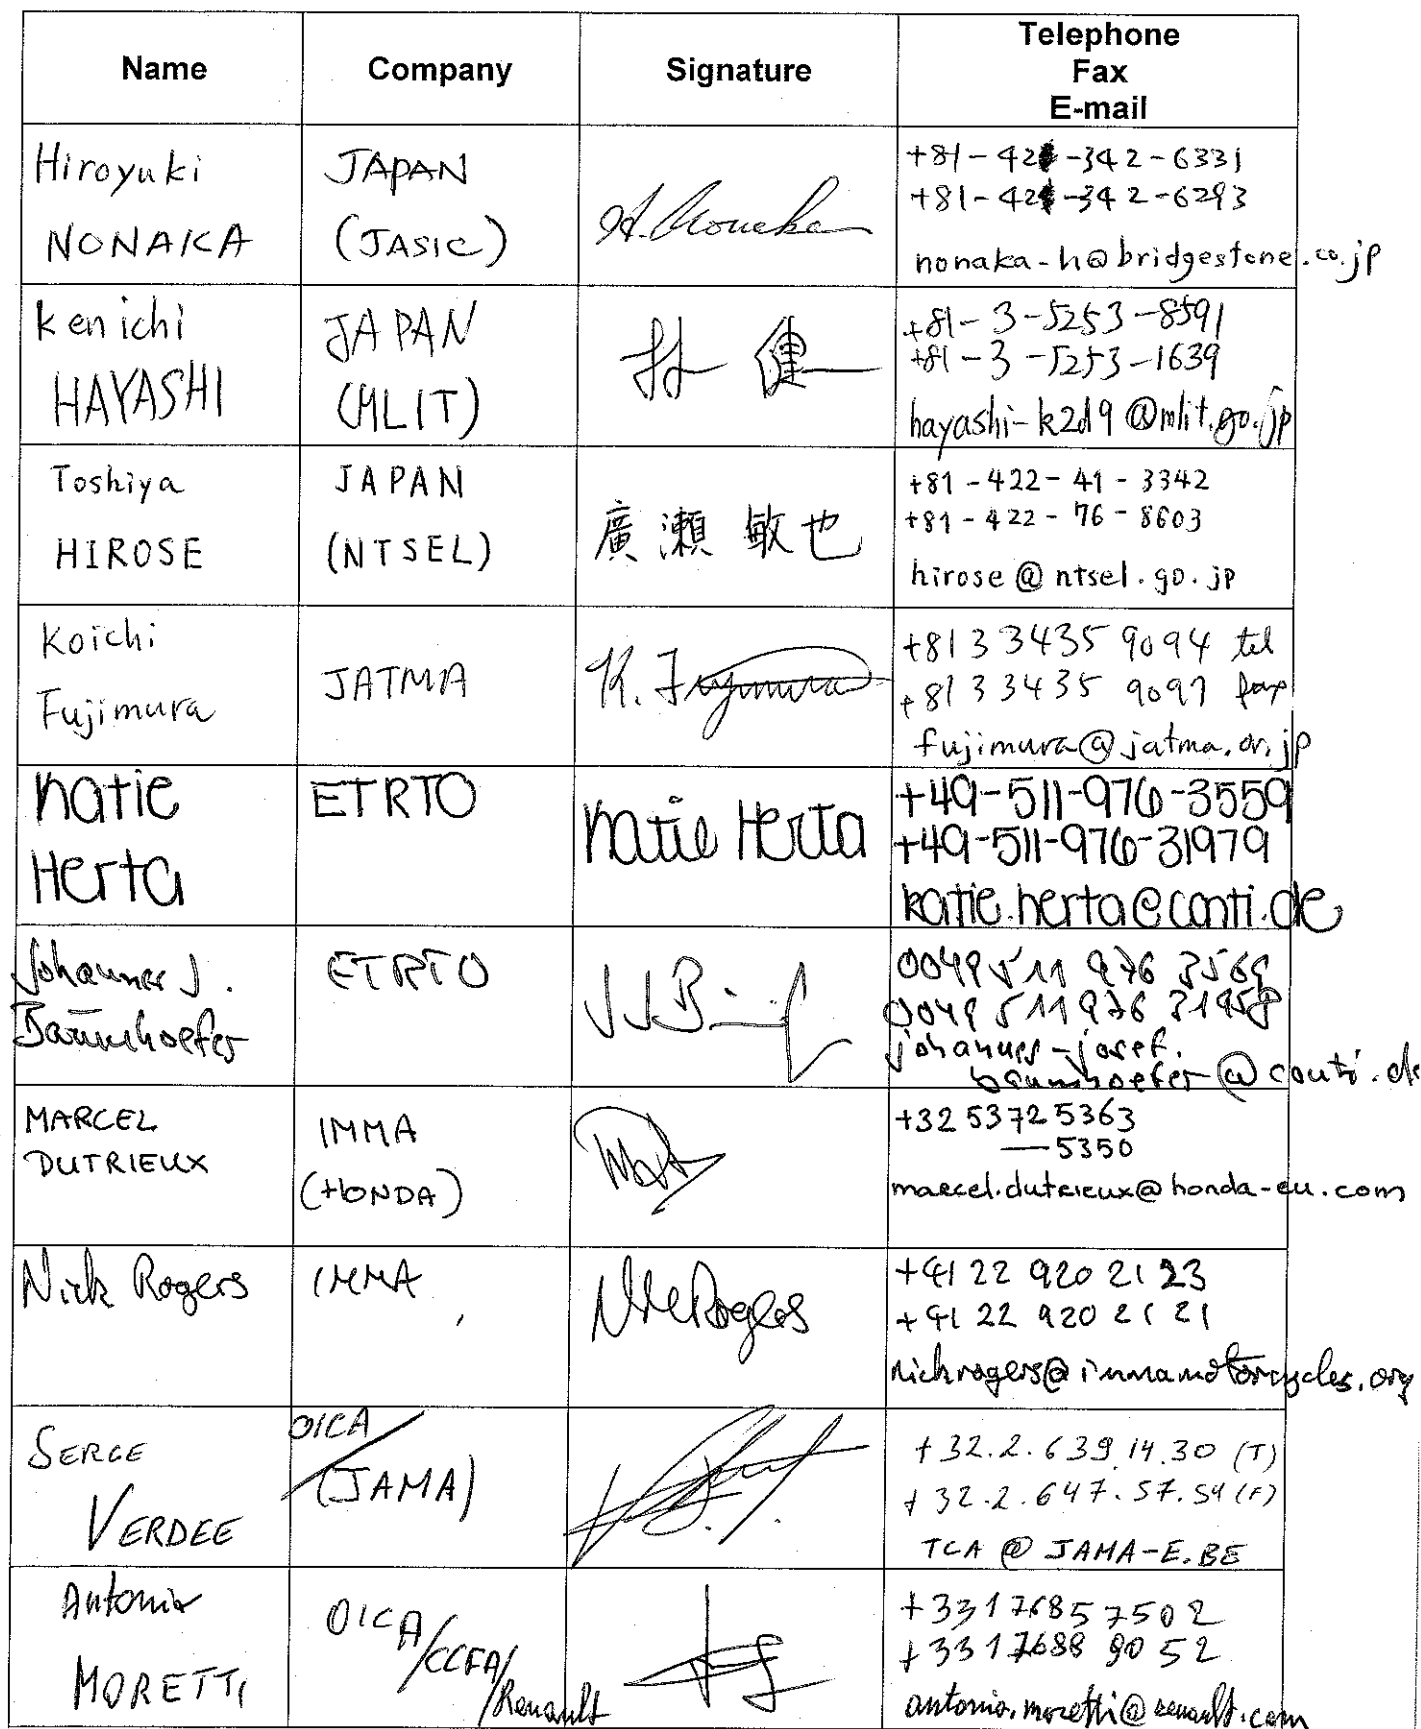 Name
Company
Signature
Telephone
Fax
E-mail
Hiroyuki
NONAKA
JAPAN
(JASIC)
H. Nonaka
+81-42-342-6331
+81-42-342-6293
nonaka-h@bridgestone.co.jp
Kenichi
HAYASHI
JAPAN
(MLIT)
林 健一
+81-3-5253-8591
+81-3-5253-1639
hayashi-k2d9@mlit.go.jp
Toshiya
HIROSE
JAPAN
(NTSEL)
廣瀬 敏也
+81-422-41-3342
+81-422-76-8603
hirose@ntsel.go.jp
Koichi
Fujimura
JATMA
K. Fujimura
+81 3 3435 9094 tel
+81 3 3435 9097 fax
fujimura@jatma.or.jp
Katie
Herta
ETRTO
Katie Herta
+49-511-976-3559
+49-511-976-31979
katie.herta@conti.de
Johannes J.
Baumhoefer
ETRTO
0049 511 976 3569
0049 511 976 31958
johannes-josef.
baumhoefer@conti.de
MARCEL
DUTRIEUX
IMMA
(HONDA)
+32 53725363
—5350
marcel.dutrieux@honda-eu.com
Nick Rogers
IMMA
NM Rogers
+41 22 920 21 23
+41 22 920 21 21
nickrogers@immamotorcycles.org
SERGE
VERDEE
OICA/
(JAMA)
+32.2.639.14.30 (T)
+32.2.647.57.54 (F)
TCA @ JAMA-E.BE
Antonio
MORETTI
OICA/CCFA/Renault
+33176857502
+33176889052
antonio.moretti@renault.com